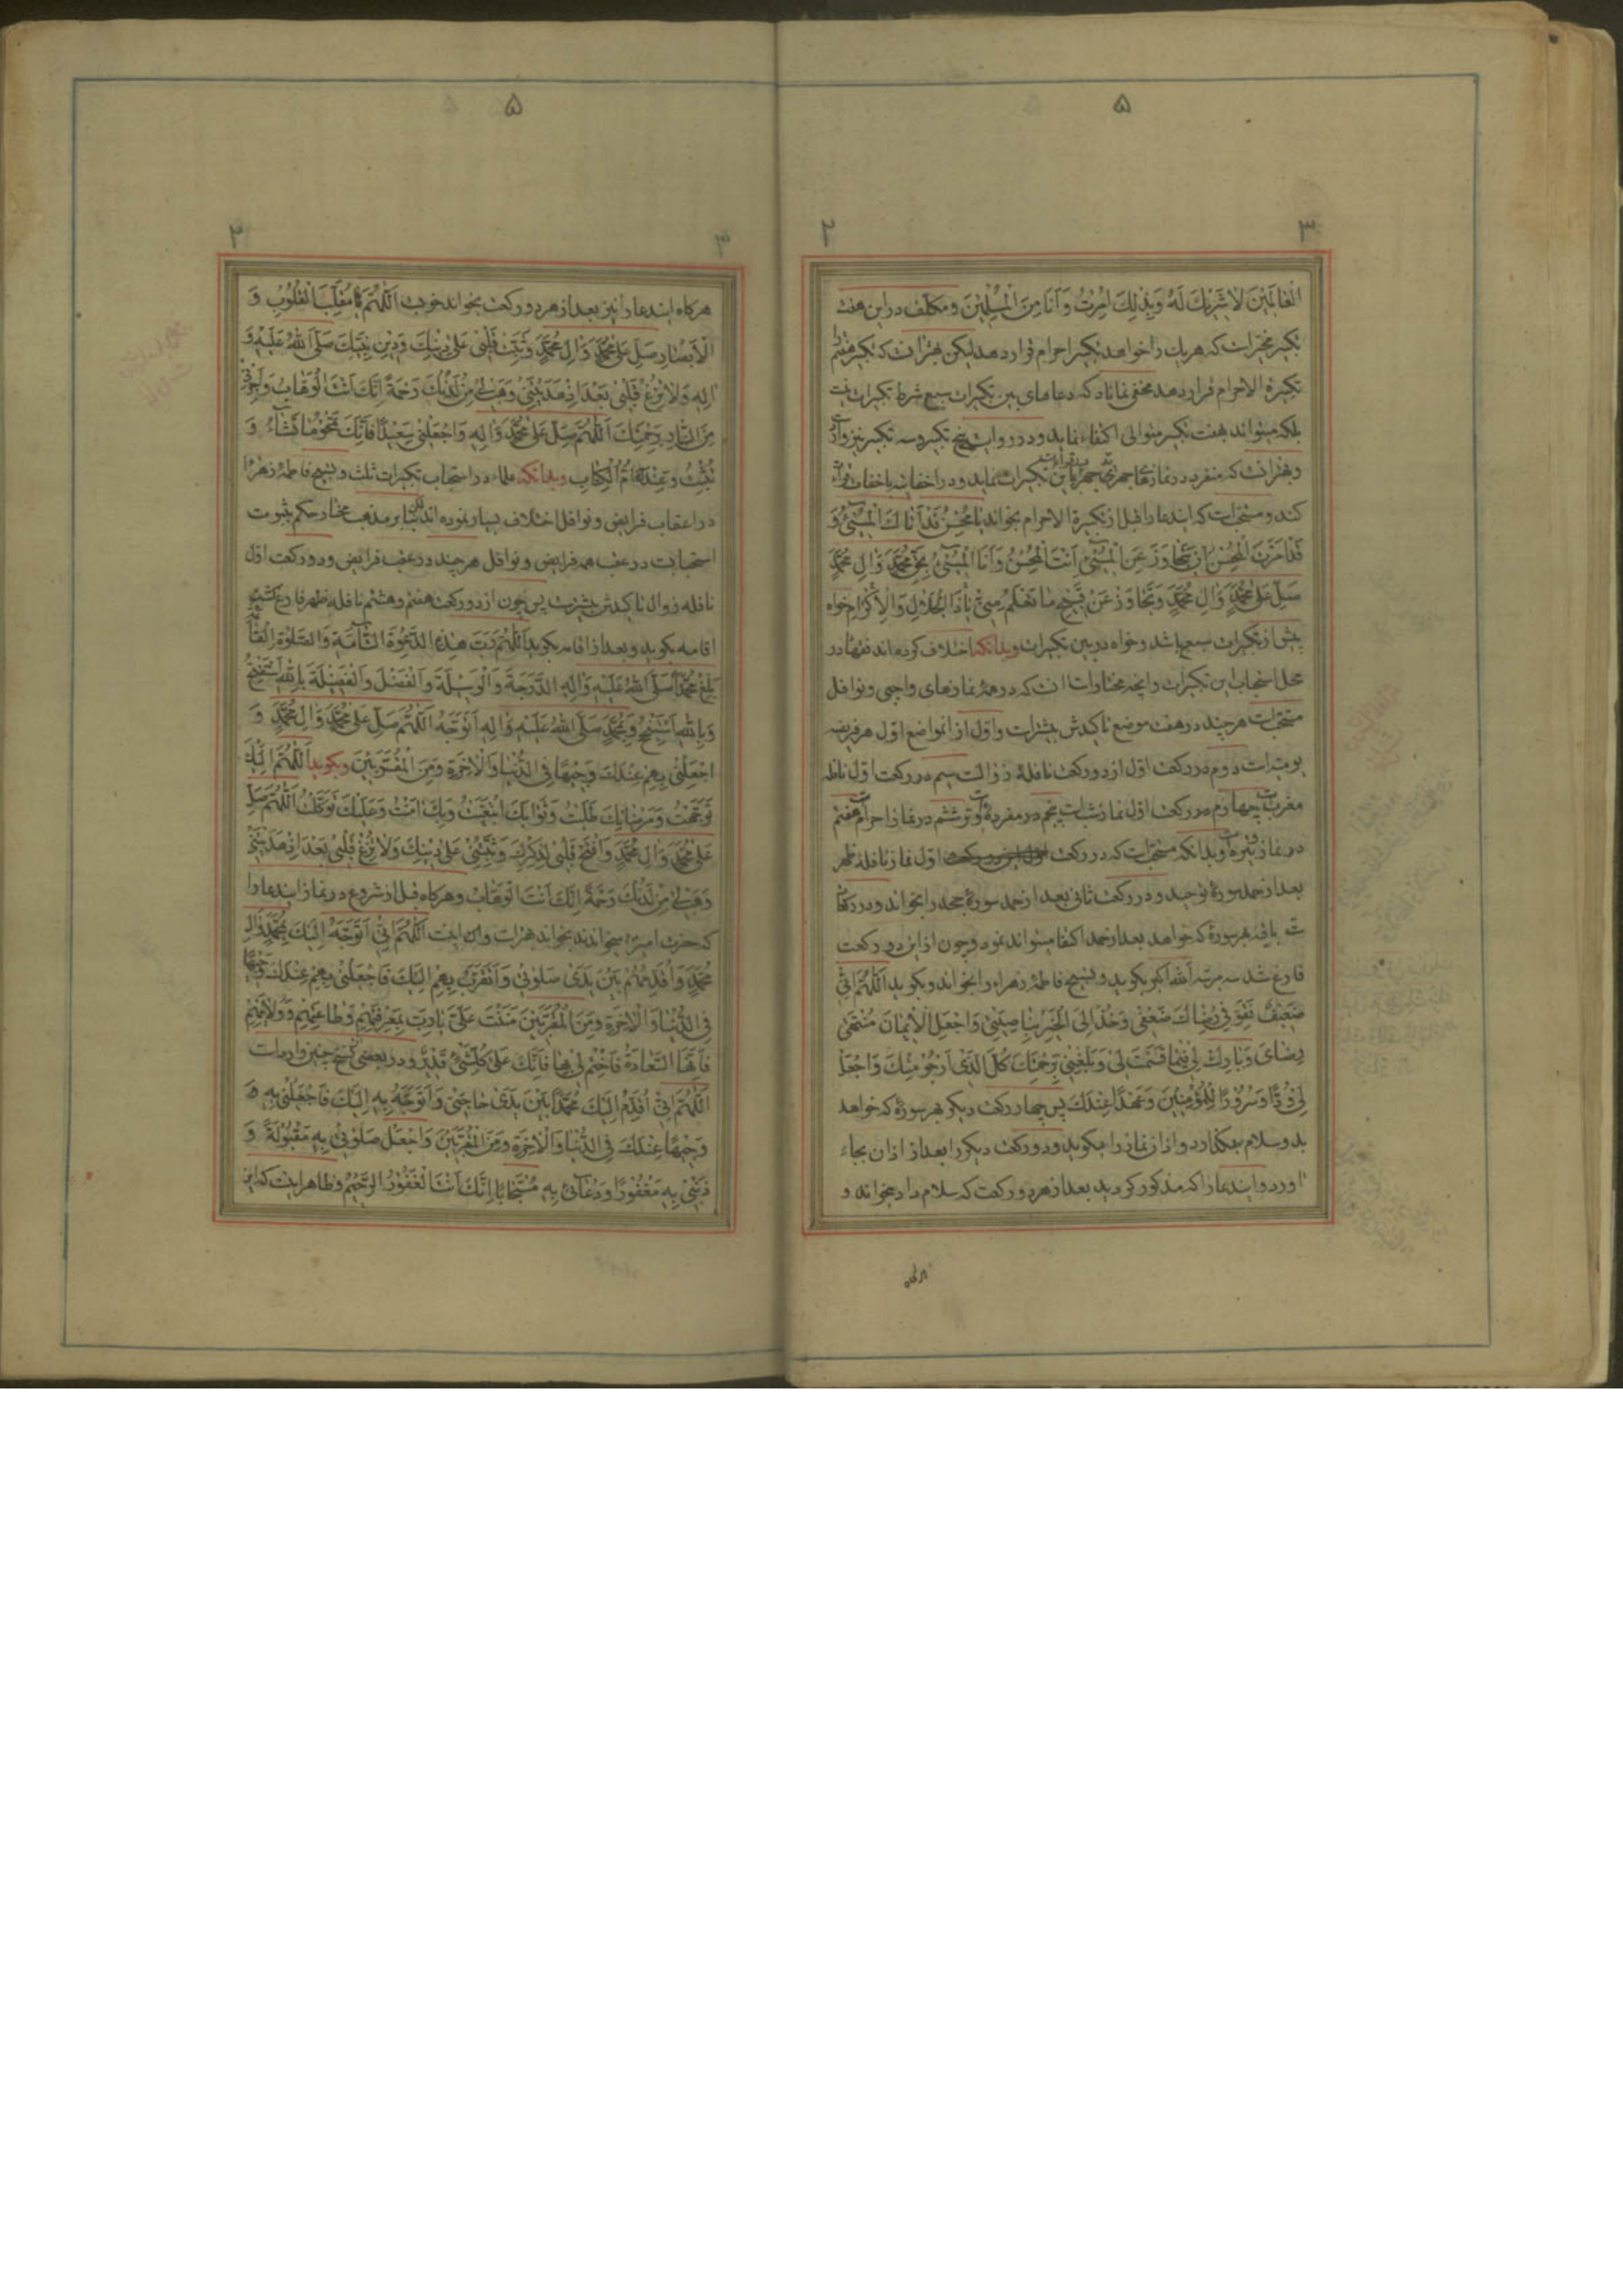 ۵
۳ ۲
الْعٰالَمينَ لٰا شَريكَ لَهُ وَبِذٰلِكَ اُمِرْتُ وَاَنَا مِنَ الْمُسْلِمينَ ومکلّف در این هفت
تکبیر مخیّر است که هر یک را خواهد تکبیر احرام قرار دهد لیکن بهتر انست که تکبیر هفتم را
تکبیرة الاحرام قرار دهد مخفی نماناد که دعاهای بین تکبیرات سبع شرط تکبیرات نیست
بلکه میتواند هفت تکبیر متوالی اکتفاء نماید و در روایت پنج تکبیر و سه تکبیر نیز وارد
و بهتر انست که منفرد در نمازهای جهری جهر باین تکبیرات نماید و در اخفاتیه باخفات
کند و مستحبّ است که ایندعا را قبل از تکبیرة الاحرام بخواند يٰا مُحْسِنُ قَدْ اَتٰاكَ الْمُسيئُ وَ
قَدْ اَمَرْتَ الْمُحْسِنَ اَنْ يَتَجٰاوَزَ عَنِ الْمُسيئِ اَنْتَ الْمُحْسِنُ وَاَنَا الْمُسيئُ بِحَقِّ مُحَمَّدٍ وَاٰلِ مُحَمَّدٍ
صَلِّ عَلىٰ مُحَمَّدٍ وَاٰلِ مُحَمَّدٍ وَتَجٰاوَزْ عَنْ قَبيحِ مٰا تَعْلَمُ مِنّي يٰا ذَا الْجَلٰالِ وَالْاِكْرٰامِ خواه
پیش از تکبیرات سبع باشد و خواه در بین تکبیرات وبدانکه اختلاف کرده‌اند فقها در
محل استحباب این تکبیرات و آنچه مختار است انست که در همهٔ نمازهای واجبی و نوافل
مستحبّ است هر چند در هفت موضع تاکیدش بیشتر است و اوّل از انمواضع اوّل هر فریضه
یومیه است دوم در رکعت اوّل از دو رکعت نافلهٔ زوال است سیم در رکعت اوّل نافله
مغرب است چهارم در رکعت اوّل نماز شب است پنجم در مفردهٔ وتر است ششم در نماز احرام است هفتم
در نماز وتیره است وبدانکه مستحبّ است که در رکعت اوّل نماز نافله ظهر
بعد از حمد سورهٔ توحید و در رکعت ثانی بعد از حمد سورهٔ جحد را بخواند و در رکعا
ت باقیه هر سورهٔ که خواهد بعد از حمد اکتفا میتواند نمود و چون از این دو رکعت
فارغ شد سه مرتبه اَللهُ اکبر بکوید و تسبیح فاطمهٔ زهراء را بخواند و بکوید اَللّٰهُمَّ اِنّي
ضَعيفٌ فَقَوِّ في رِضٰاكَ ضَعْفي وَخُذْ اِلَى الْخَيْرِ بِنٰاصِيَتي وَاجْعَلِ الْايمٰانَ مُنْتَهىٰ
رِضٰايَ وَبٰارِكْ لي فيمٰا قَسَمْتَ لي وَبَلِّغْني بِرَحْمَتِكَ كُلَّ الَّذي اَرْجُو مِنْكَ وَاجْعَلْ
لي وُدًّا وَسُرُورًا لِلْمُؤْمِنينَ وَعَهْدًا عِنْدَكَ پس چهار رکعت دیکر بهر سورهٔ که خواهد
بدو سلام بکذارد و اذان نماز را بکوید و دو رکعت دیکر را بعد از اذان بجاء
اورد و ایندعا را که مذکور کردید بعد از هر دو رکعت که سلام داد بخواند و
هرکاه
۵
۳ ۲
هر کاه ایندعا را نیز بعد از هر دو رکعت بخواند خوبست اَللّٰهُمَّ يٰا مُقَلِّبَ الْقُلُوبِ وَ
الْاَبْصٰارِ صَلِّ عَلىٰ مُحَمَّدٍ وَاٰلِ مُحَمَّدٍ وَثَبِّتْ قَلْبي عَلىٰ دينِكَ وَدينِ نَبِيِّكَ صَلَّى اللهُ عَلَيْهِ وَ
اٰلِهِ وَلٰا تُزِغْ قَلْبي بَعْدَ اِذْ هَدَيْتَني وَهَبْ لي مِنْ لَدُنْكَ رَحْمَةً اِنَّكَ اَنْتَ الْوَهّٰابُ وَاَجِرْني
مِنَ النّٰارِ بِرَحْمَتِكَ اَللّٰهُمَّ صَلِّ عَلىٰ مُحَمَّدٍ وَاٰلِهِ وَاجْعَلْني سَعيدًا فَاِنَّكَ تَمْحُو مٰا تَشٰآءُ وَ
تُثْبِتُ وَعِنْدَكَ اُمُّ الْكِتٰابِ وبدانکه علماء در استحباب تکبیرات ثلث و تسبیح فاطمهٔ زهرا
در اعقاب فرایض و نوافل اختلاف بسیار نموده اند لکن بنا بر مذهب مختار حکم بثبوت
استحبابست در عقب همه فرایض و نوافل هر چند در عقب فرایض و دو رکعت اوّل
نافله زوال تاکیدش بیشتر است پس چون از دو رکعت هفتم و هشتم نافله ظهر فارغ کشتی
اقامه بکوید و بعد از اقامه بکوید اَللّٰهُمَّ رَبَّ هٰذِهِ الدَّعْوَةِ التّٰآمَّةِ وَالصَّلٰوةِ الْقٰآئِمَةِ
بَلِّغْ مُحَمَّدًا صَلَّى اللهُ عَلَيْهِ وَاٰلِهِ الدَّرَجَةَ وَالْوَسيلَةَ وَالْفَضْلَ وَالْفَضيلَةَ بِاللهِ اَسْتَفْتِحُ
وَبِاللهِ اَسْتَنْجِحُ وَبِمُحَمَّدٍ صَلَّى اللهُ عَلَيْهِ وَاٰلِهِ اَتَوَجَّهُ اَللّٰهُمَّ صَلِّ عَلىٰ مُحَمَّدٍ وَاٰلِ مُحَمَّدٍ وَ
اجْعَلْني بِهِمْ عِنْدَكَ وَجيهًا فِي الدُّنْيٰا وَالْاٰخِرَةِ وَمِنَ الْمُقَرَّبينَ وبکوید اَللّٰهُمَّ اِلَيْكَ
تَوَجَّهْتُ وَمَرْضٰاتِكَ طَلَبْتُ وَثَوٰابَكَ ابْتَغَيْتُ وَبِكَ اٰمَنْتُ وَعَلَيْكَ تَوَكَّلْتُ اَللّٰهُمَّ صَلِّ
عَلىٰ مُحَمَّدٍ وَاٰلِ مُحَمَّدٍ وَافْتَحْ قَلْبي لِذِكْرِكَ وَثَبِّتْني عَلىٰ دينِكَ وَلٰا تُزِغْ قَلْبي بَعْدَ اِذْ هَدَيْتَني
وَهَبْ لي مِنْ لَدُنْكَ رَحْمَةً اِنَّكَ اَنْتَ الْوَهّٰابُ وهرکاه قبل از شروع در نماز ایندعا را
که حضرت امیر میخواندند بخواند بهتر است وان اینست اَللّٰهُمَّ اِنّي اَتَوَجَّهُ اِلَيْكَ بِمُحَمَّدٍ وَاٰلِ
مُحَمَّدٍ وَاُقَدِّمُهُمْ بَيْنَ يَدَيْ صَلٰوتي وَاَتَقَرَّبُ بِهِمْ اِلَيْكَ فَاجْعَلْني بِهِمْ عِنْدَكَ وَجيهًا
فِي الدُّنْيٰا وَالْاٰخِرَةِ وَمِنَ الْمُقَرَّبينَ مَنَنْتَ عَلَيَّ يٰا رَبِّ بِمَعْرِفَتِهِمْ وَطٰاعَتِهِمْ وَوِلٰايَتِهِمْ
فَاِنَّهَا السَّعٰادَةُ فَاخْتِمْ لي بِهٰا فَاِنَّكَ عَلىٰ كُلِّ شَيْءٍ قَديرٌ و در بعضی نسخ چنین وارد است
اَللّٰهُمَّ اِنّي اُقَدِّمُ اِلَيْكَ مُحَمَّدًا بَيْنَ يَدَيْ حٰاجَتي وَاَتَوَجَّهُ بِهِ اِلَيْكَ فَاجْعَلْني بِهِ
وَجيهًا عِنْدَكَ فِي الدُّنْيٰا وَالْاٰخِرَةِ وَمِنَ الْمُقَرَّبينَ وَاجْعَلْ صَلٰوتي بِهِ مَقْبُولَةً وَ
ذَنْبي بِهِ مَغْفُورًا وَدُعٰائي بِهِ مُسْتَجٰابًا اِنَّكَ اَنْتَ الْغَفُورُ الرَّحيمُ وظاهر اینست که این